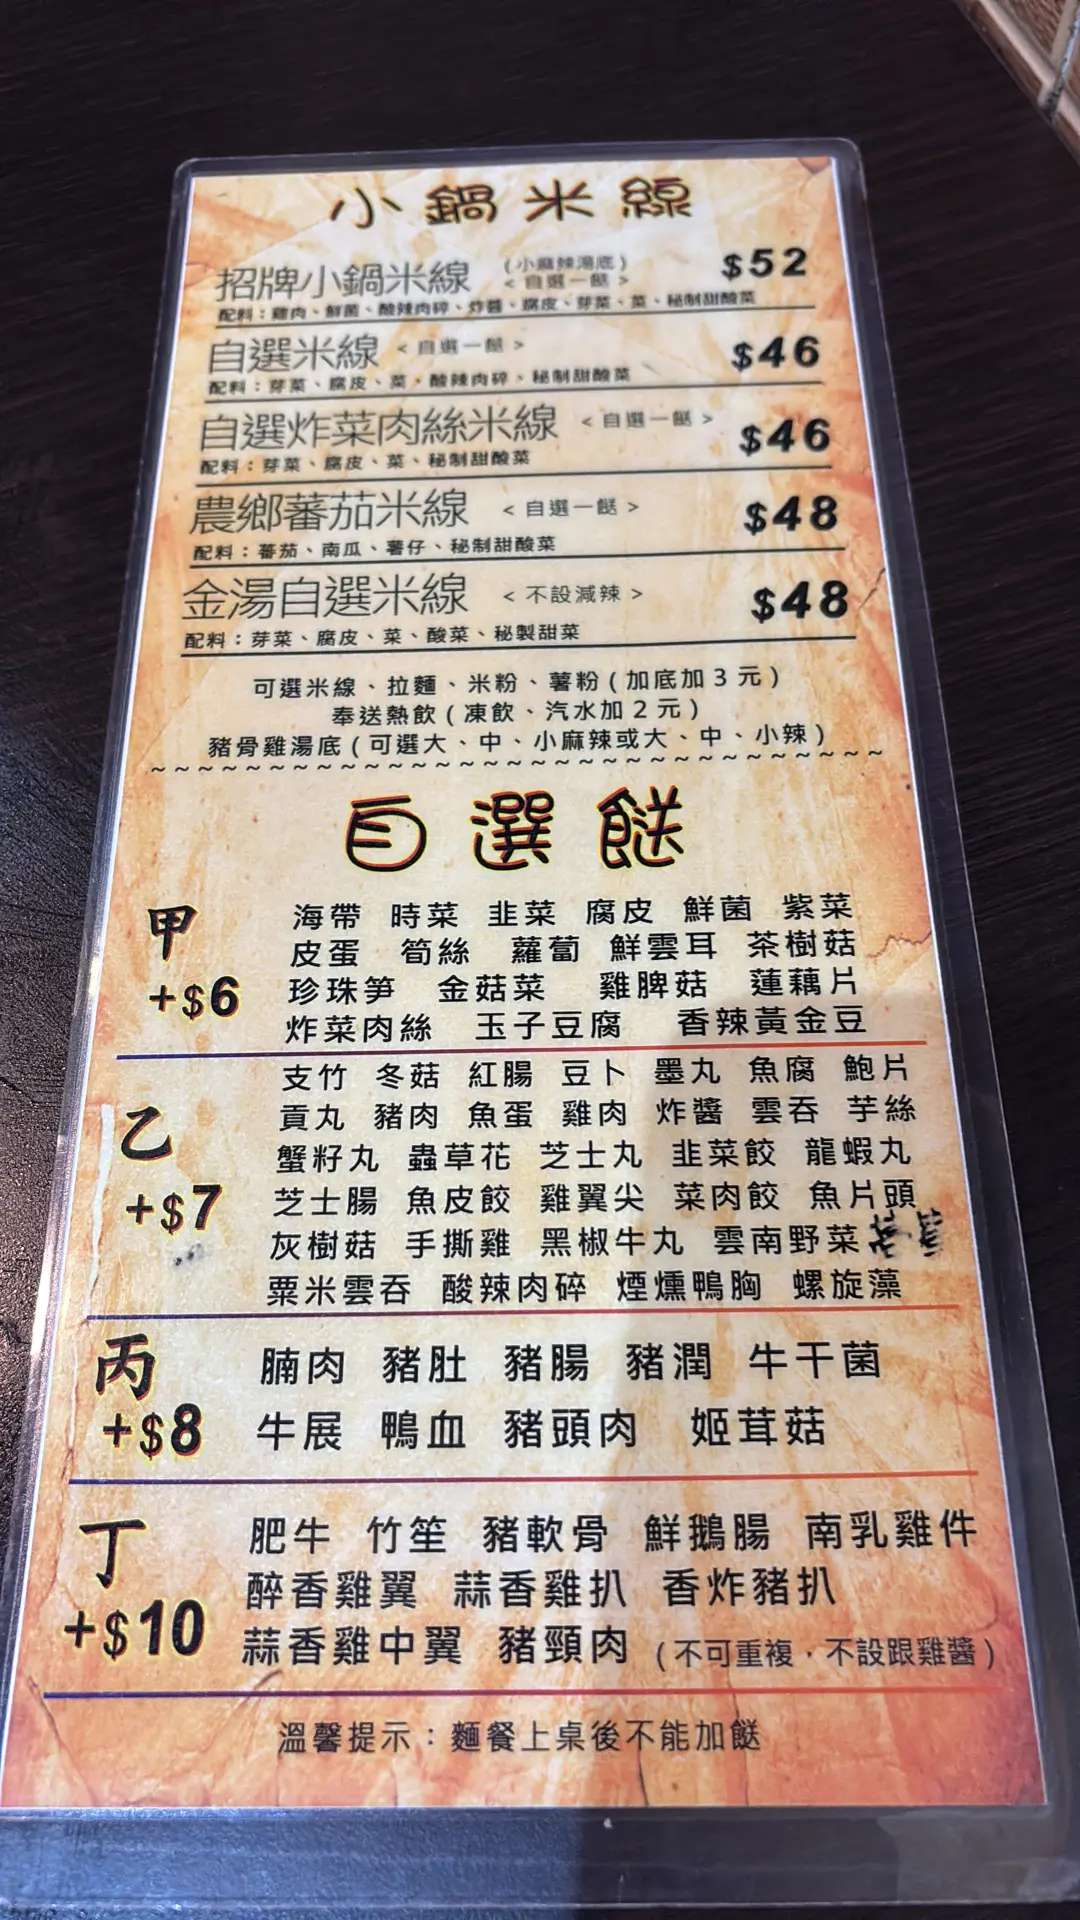 小鍋米線
招牌小鍋米線 (小麻辣湯底) $52
< 自選一餸 >
配料：雞肉、鮮菌、酸辣肉碎、炸醬、腐皮、芽菜、菜、秘制甜酸菜
自選米線 < 自選一餸 > $46
配料：芽菜、腐皮、菜，酸辣肉碎、秘制甜酸菜
自選炸菜肉絲米線 < 自選一餸 > $46
配料：芽菜、腐皮、菜、秘制甜酸菜
農鄉蕃茄米線 < 自選一餸 > $48
配料：蕃茄、南瓜、薯仔、秘制甜酸菜
金湯自選米線 < 不設減辣 > $48
配料：芽菜、腐皮、菜、酸菜、秘製甜菜
可選米線、拉麵、米粉、薯粉(加底加3元)
奉送熱飲(凍飲、汽水加2元)
豬骨雞湯底(可選大、中、小麻辣或大、中、小辣)
~~~~~~~~~~~~~~~~~~~~~~~~~~~~~~~
自選餸
甲 +$6
海帶 時菜 韭菜 腐皮 鮮菌 紫菜
皮蛋 筍絲 蘿蔔 鮮雲耳 茶樹菇
珍珠笋 金菇菜 雞脾菇 蓮藕片
炸菜肉絲 玉子豆腐 香辣黃金豆
乙 +$7
支竹 冬菇 紅腸 豆卜 墨丸 魚腐 鮑片
貢丸 豬肉 魚蛋 雞肉 炸醬 雲吞 芋絲
蟹籽丸 蟲草花 芝士丸 韭菜餃 龍蝦丸
芝士腸 魚皮餃 雞翼尖 菜肉餃 魚片頭
灰樹菇 手撕雞 黑椒牛丸 雲南野菜
粟米雲吞 酸辣肉碎 煙燻鴨胸 螺旋藻
丙 +$8
腩肉 豬肚 豬腸 豬潤 牛干菌
牛展 鴨血 豬頭肉 姬茸菇
丁 +$10
肥牛 竹笙 豬軟骨 鮮鵝腸 南乳雞件
醉香雞翼 蒜香雞扒 香炸豬扒
蒜香雞中翼 豬頸肉 (不可重複，不設跟雞醬)
溫馨提示：麵餐上桌後不能加餸